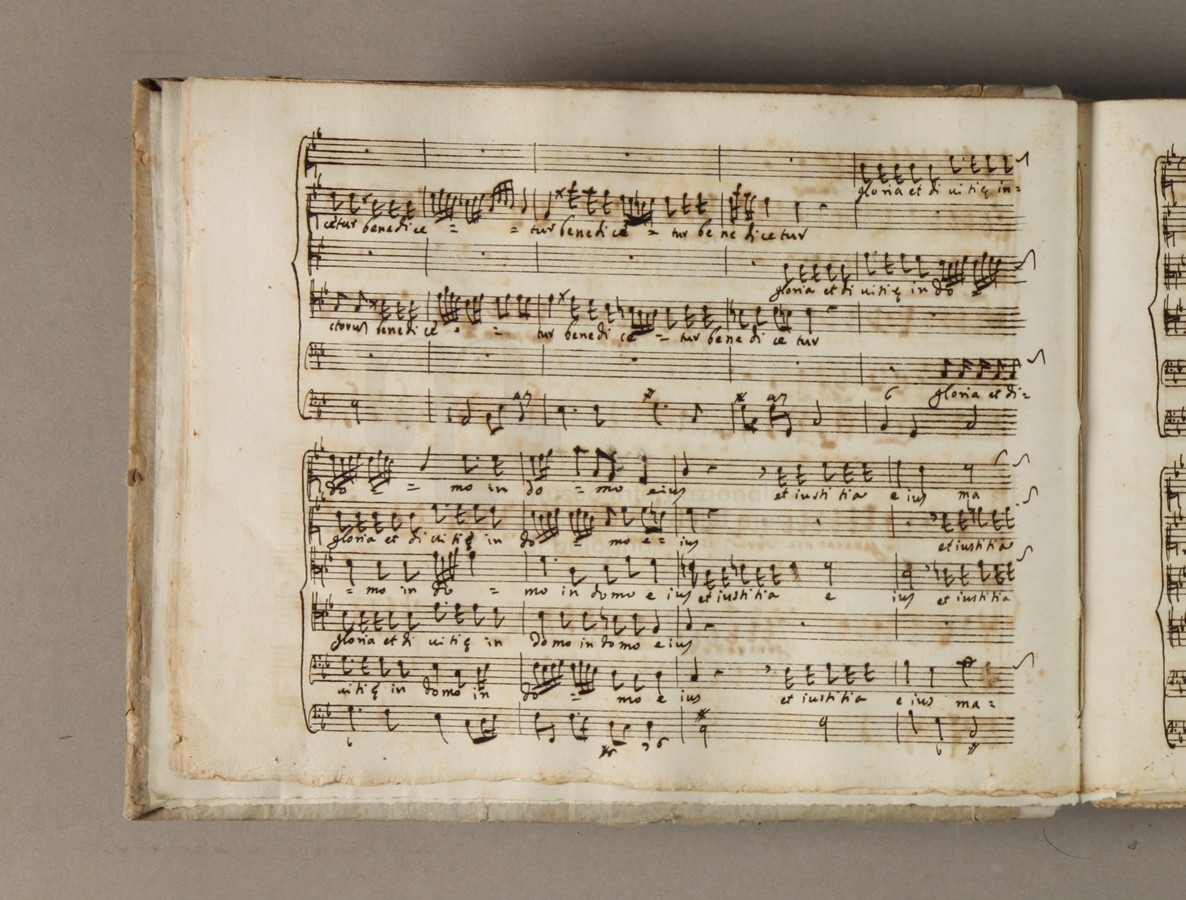 gloria et di vitię in=
cetur benedice = = tur benedice = tur be ne dicetur
gloria et di vitię in do =
ctorum benedice = = tur benedi ce = tur bene di ce tur
6
gloria et di=
do = = mo in do = mo eius et iustitia e ius ma
gloria et di vitię in do = mo e = ius et iustitia
= mo in do = mo in domo e ius et iustitia e ius et iustitia
gloria et di vitię in domo in domo eius
vitię in domo in do = mo e ius et iustitia e ius ma =
6 6
6